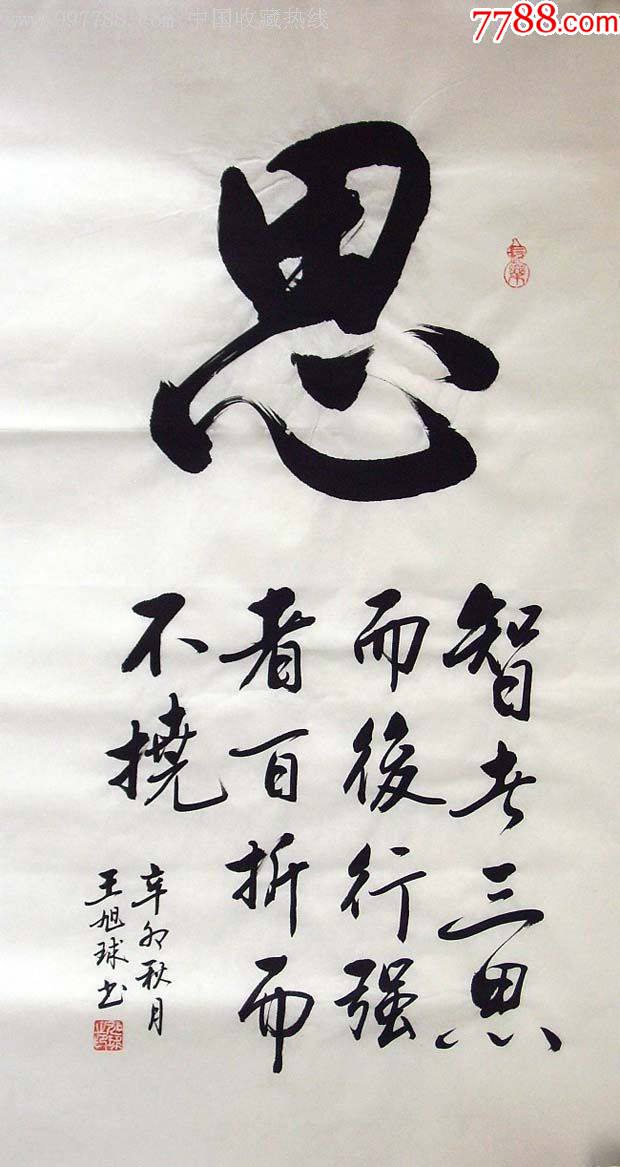 www.997788.com 中国收藏热线
7788.com
思
智者三思
而後行强
者百折而
不撓
辛卯秋月
王旭球书